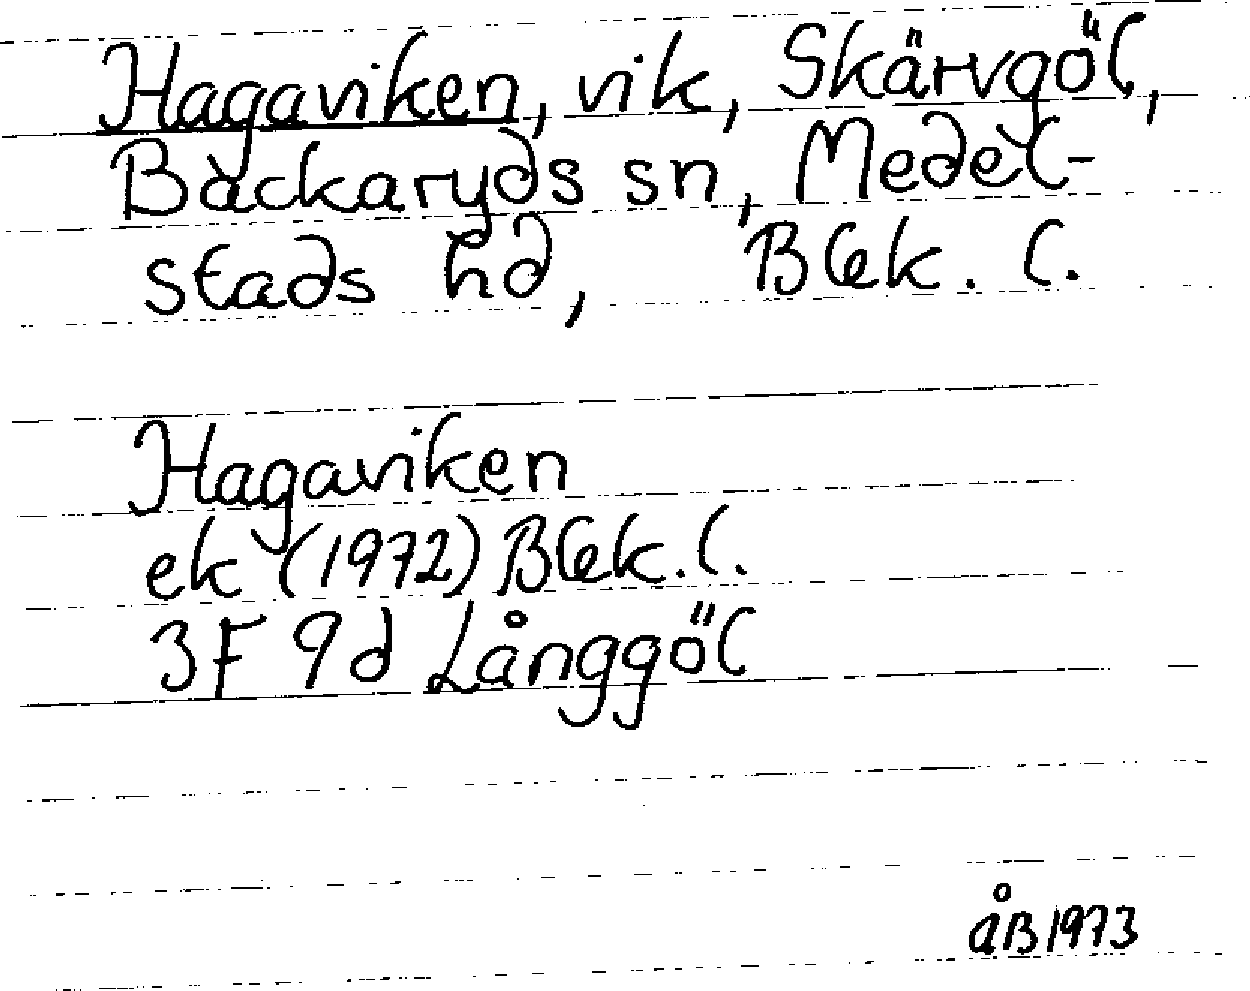 Hagaviken, vik, Skärvgöl,
Backaryds sn, Medel-
stads hd, Blek. l.
Hagaviken
ek (1972) Blek. l.
3F 9d Långgöl
åB 1973